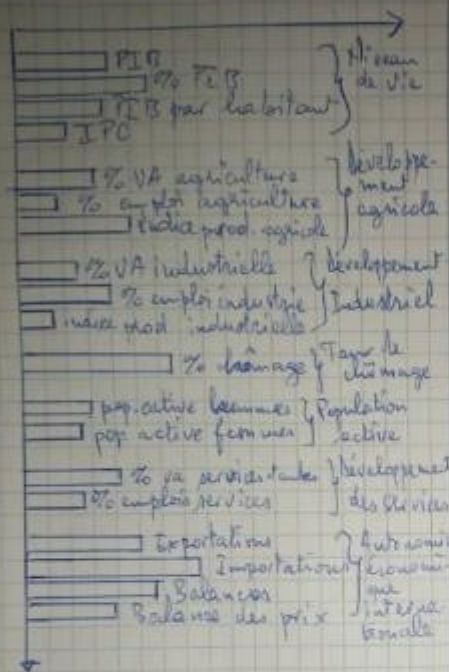 PIB
% PIB
PIB par habitant
IPC
Niveau
de vie
% VA agriculture
% emploi agriculture
indice prod. agricole
Développe-
ment
agricole
% VA industrielle
% emploi industrie
indice prod industrielle
Développement
Industriel
% chômage
Taux de
chômage
pop. active hommes
pop active femmes
Population
active
% va services
% emplois services
Développement
des services
Exportations
Importations
Balances
Balance des prix
Autonomie
économi-
que
interna
tionale